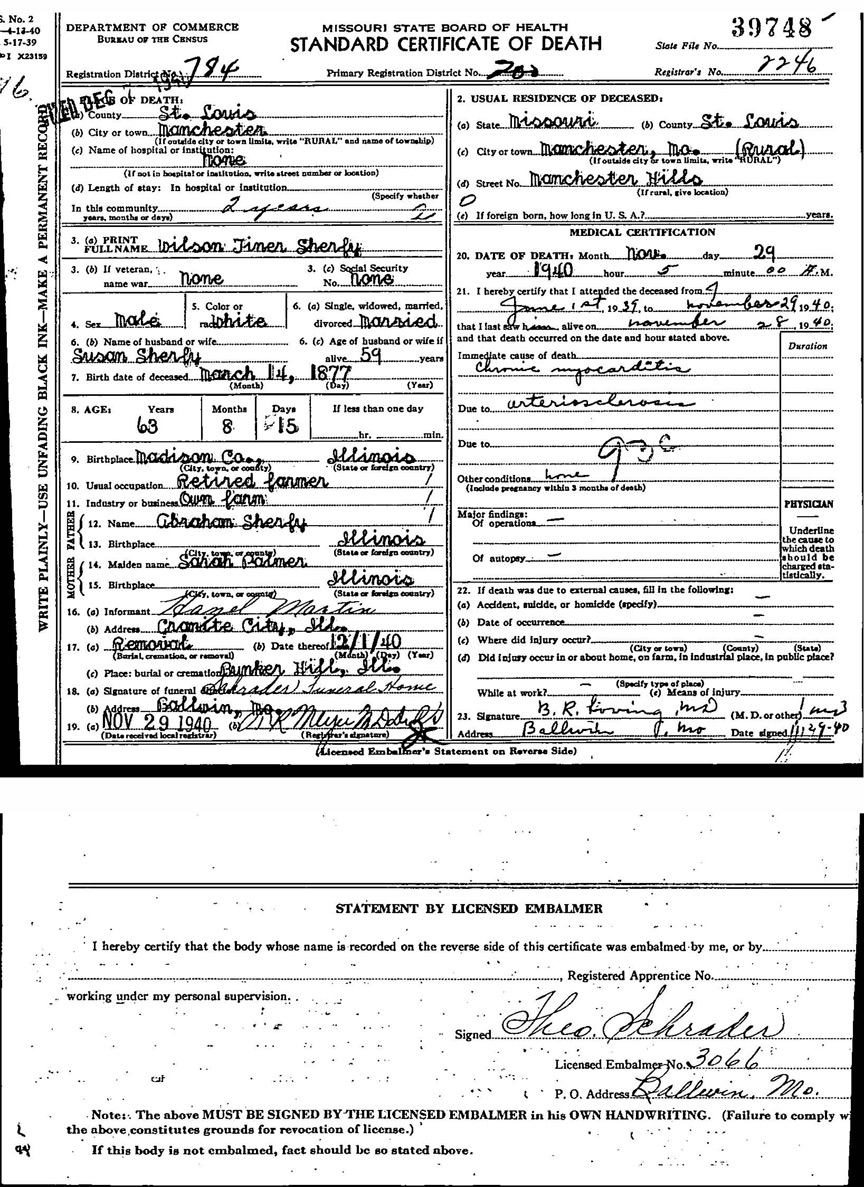 S. No. 2
4-13-40
5-17-39
I X23159
DEPARTMENT OF COMMERCE
BUREAU OF THE CENSUS
MISSOURI STATE BOARD OF HEALTH
STANDARD CERTIFICATE OF DEATH
39748
State File No.
Registration District No. 784
Primary Registration District No. 200
Registrar's No. 2246
WRITE PLAINLY—USE UNFADING BLACK INK—MAKE A PERMANENT RECORD
PLACE OF DEATH:
(a) County St. Louis
(b) City or town Manchester
(If outside city or town limits, write "RURAL" and name of township)
(c) Name of hospital or institution:
None
(If not in hospital or institution, write street number or location)
(d) Length of stay: In hospital or institution
(Specify whether
In this community 2 years
years, months or days)
3. (a) PRINT FULL NAME Wilson Tiner Sherfy
3. (b) If veteran, name war None
3. (c) Social Security No. None
4. Sex Male
5. Color or race White
6. (a) Single, widowed, married, divorced Married
6. (b) Name of husband or wife Susan Sherfy
6. (c) Age of husband or wife if alive 59 years
7. Birth date of deceased March 14, 1877
(Month) (Day) (Year)
8. AGE: Years 63 Months 8 Days 15 If less than one day hr. min.
9. Birthplace Madison Co., Illinois
(City, town, or county) (State or foreign country)
10. Usual occupation Retired farmer
11. Industry or business Own farm
FATHER
12. Name Abraham Sherfy
13. Birthplace Illinois
(City, town, or county) (State or foreign country)
MOTHER
14. Maiden name Sarah Palmer
15. Birthplace Illinois
(City, town, or county) (State or foreign country)
16. (a) Informant Hazel Martin
(b) Address Granite City, Ill.
17. (a) Removal (b) Date thereof 12/1/40
(Burial, cremation, or removal) (Month) (Day) (Year)
(c) Place: burial or cremation Bunker Hill, Ill.
18. (a) Signature of funeral Schrader Funeral Home
(b) Address Ballwin, Mo.
19. (a) NOV 29 1940 (b)
(Date received local registrar) (Registrar's signature)
2. USUAL RESIDENCE OF DECEASED:
(a) State Missouri (b) County St. Louis
(c) City or town Manchester, Mo. (Rural)
(If outside city or town limits, write "RURAL")
(d) Street No. Manchester Hills
(If rural, give location)
0
(e) If foreign born, how long in U. S. A.? years.
MEDICAL CERTIFICATION
20. DATE OF DEATH: Month Nov. day 29
year 1940 hour 5 minute 00 A.M.
21. I hereby certify that I attended the deceased from
June 1st, 1939, to November 29, 1940;
that I last saw him alive on November 28, 1940;
and that death occurred on the date and hour stated above.
Duration
Immediate cause of death
Chronic myocarditis
Due to arteriosclerosis
Due to
93c
Other conditions none
(Include pregnancy within 3 months of death)
Major findings:
Of operations —
Of autopsy —
PHYSICIAN
Underline the cause to which death should be charged statistically.
22. If death was due to external causes, fill in the following:
(a) Accident, suicide, or homicide (specify) —
(b) Date of occurrence —
(c) Where did injury occur? —
(City or town) (County) (State)
(d) Did injury occur in or about home, on farm, in industrial place, in public place?
—
(Specify type of place)
While at work? (e) Means of injury
23. Signature B. R. Loving, MD (M. D. or other) MD
Address Ballwin, Mo Date signed 11-29-40
(Licensed Embalmer's Statement on Reverse Side)
STATEMENT BY LICENSED EMBALMER
I hereby certify that the body whose name is recorded on the reverse side of this certificate was embalmed by me, or by
, Registered Apprentice No.
working under my personal supervision.
Signed Theo. Schrader
Licensed Embalmer No. 3066
P. O. Address Ballwin, Mo.
Note: The above MUST BE SIGNED BY THE LICENSED EMBALMER in his OWN HANDWRITING. (Failure to comply w
the above constitutes grounds for revocation of license.)
If this body is not embalmed, fact should be so stated above.